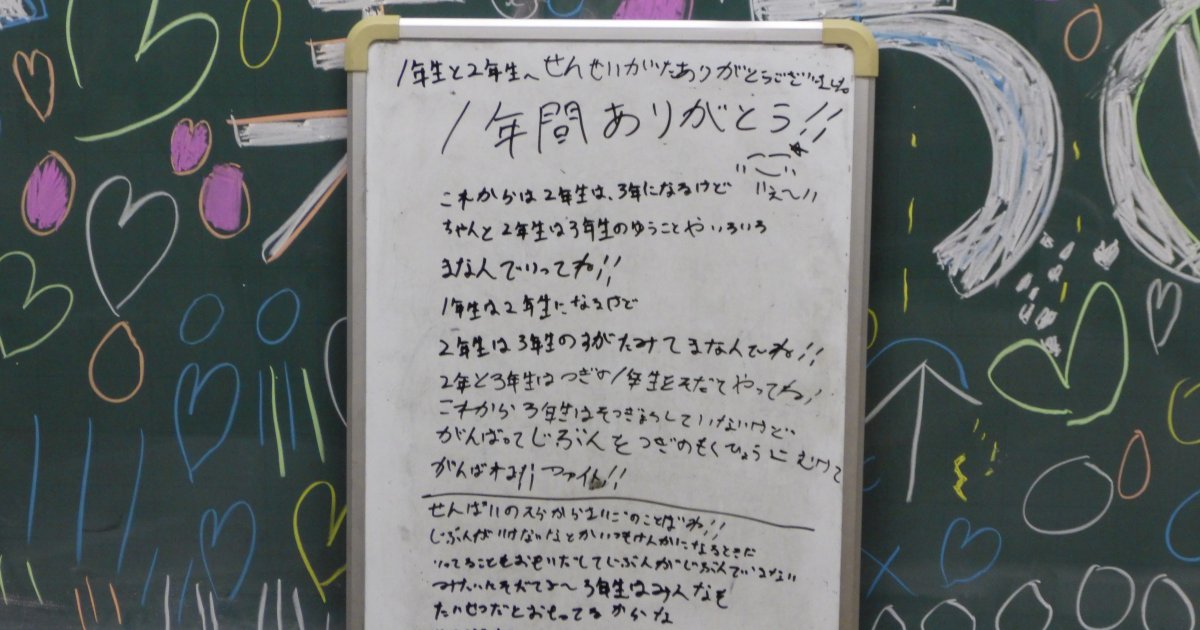 1年生と2年生へせんせいがたありがとうございました。
1年間ありがとう!!
"え〜"
これからは2年生は、3年になるけど
ちゃんと2年生は3年生のゆうことやいろいろ
まなんでいってね!!
1年生は2年生になるけど
2年生は3年生のすがたみてまなんでね!!
2年と3年生はつぎの1年生をそだてやってね!
これから3年生はそつぎょうしていけないけど、
がんばってじぶんをつぎのもくひょうにむけて
がんばれね!!ファイト!!
せんぱいのからさいごのことばね!!
じぶんがいけないなとかいつもけんかになるときだ
ってることもおもいだしてじぶんがじぶんで
みたいに 3年生はみんなも
たいせつだとおもってるからな